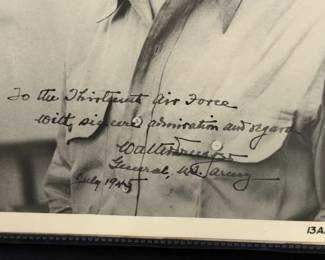 To the Thirteenth Air Force
With sincere admiration and regard
Walter Krueger
General, U.S. Army
July 1945
13A